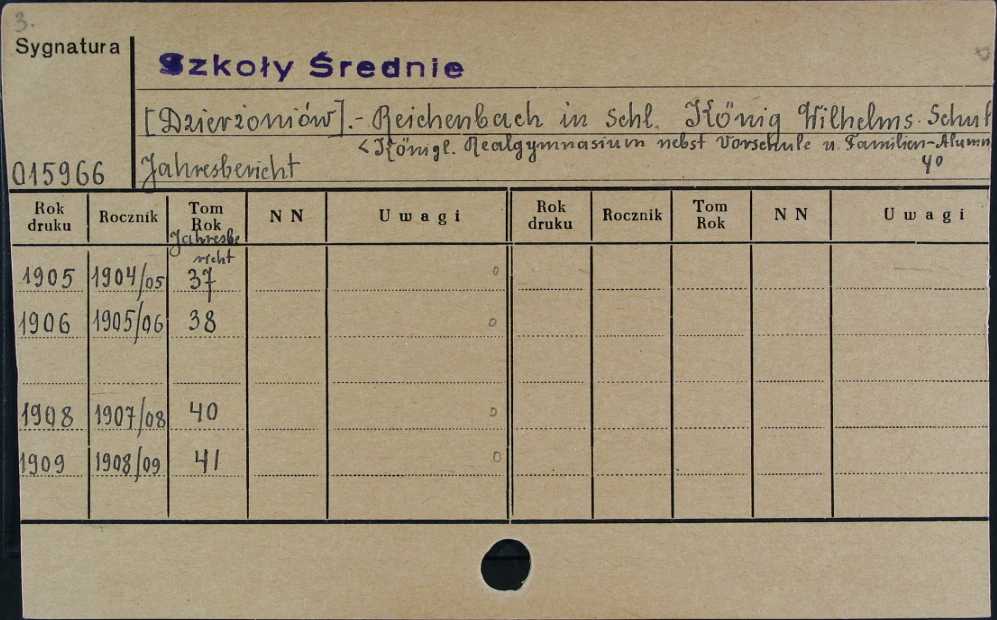 3.
Sygnatura
Szkoły Średnie
[Dzierżoniów].- Reichenbach in Schl. König Wilhelms-Schul
<Königl. Realgymnasium nebst Vorschule u. Familien-Alumn
015966 Jahresbericht 4°
Rok druku Rocznik Tom Rok NN Uwagi Rok druku Rocznik Tom Rok NN Uwagi
Jahresbericht
1905 1904/05 37 0
1906 1905/06 38 0
1908 1907/08 40 0
1909 1908/09 41 0